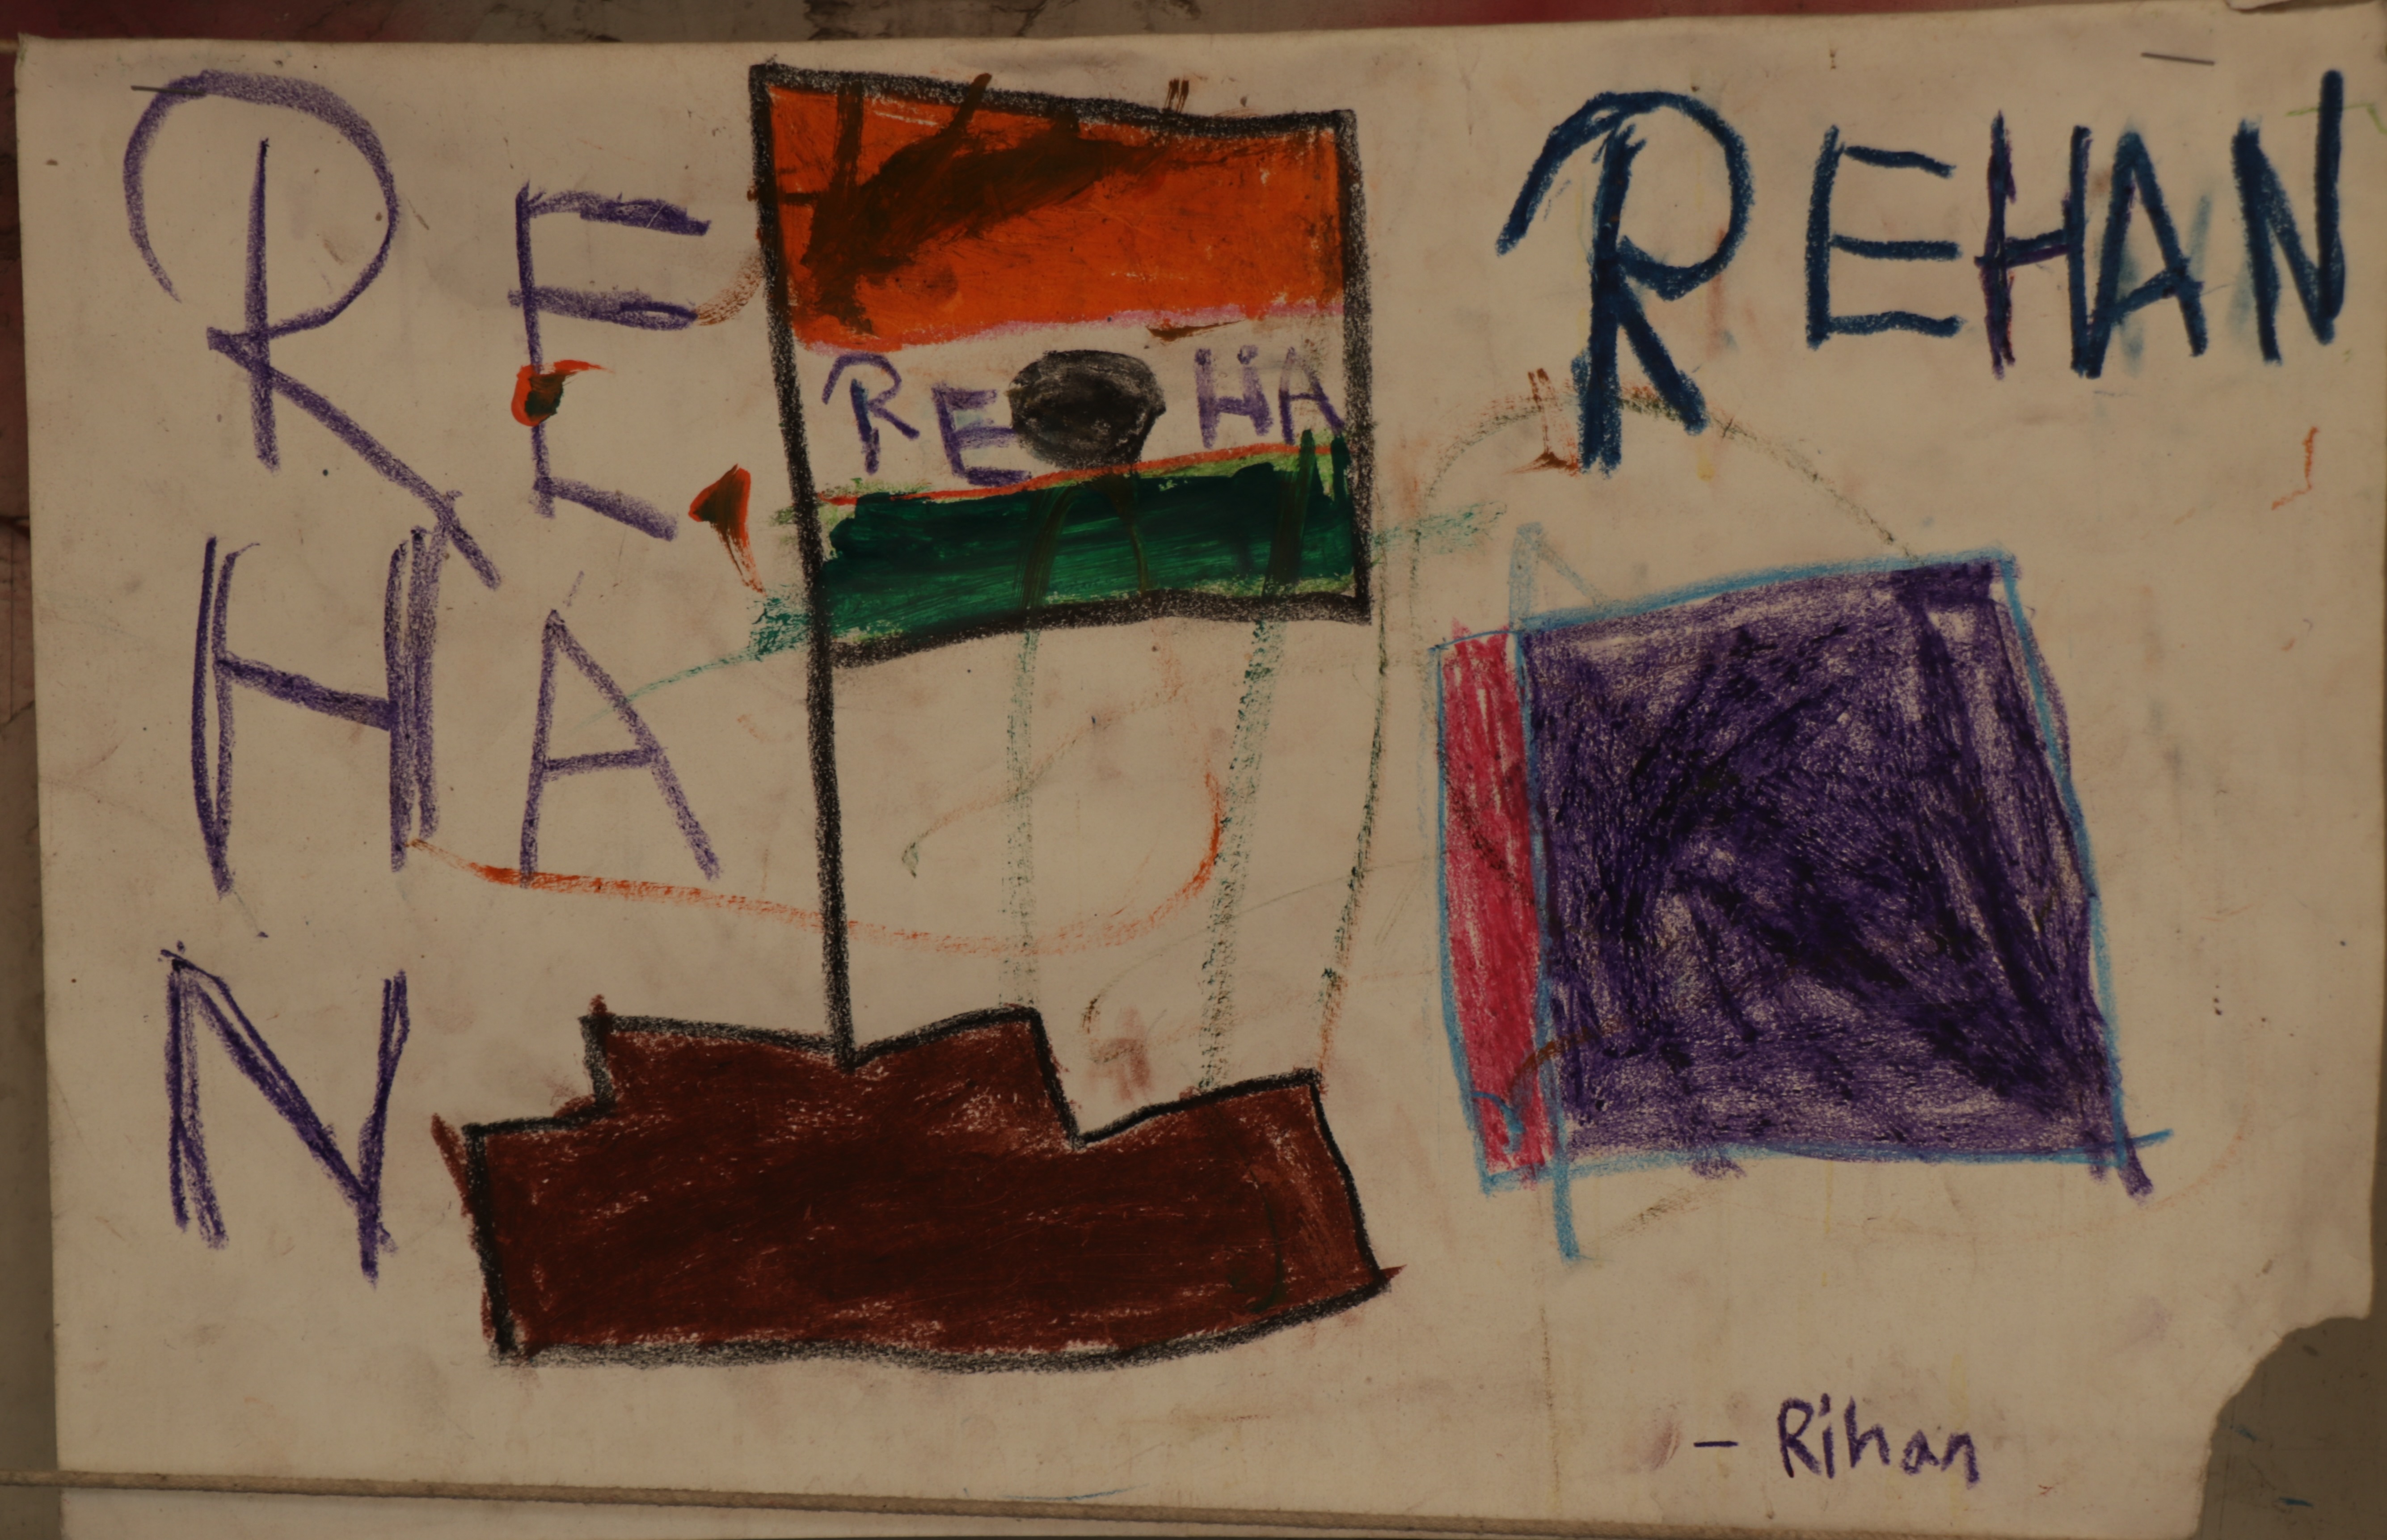 RE
HA
N
REHA
REHAN
- Rihan